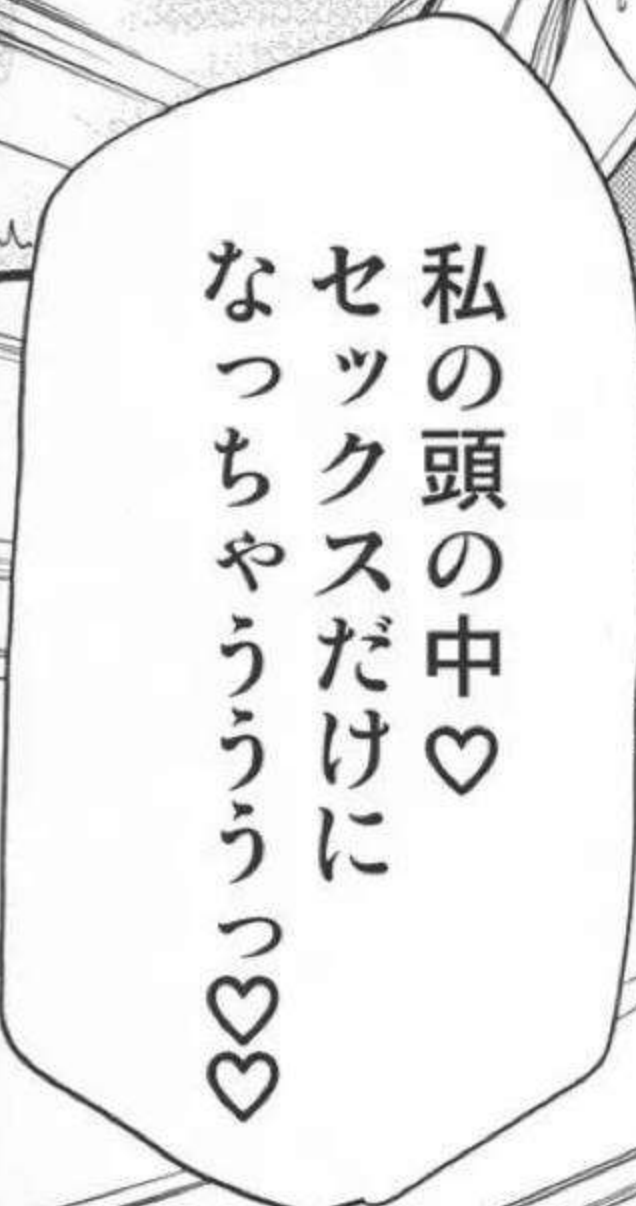 私の頭の中♡
セックスだけに
なっちゃうううっ♡♡